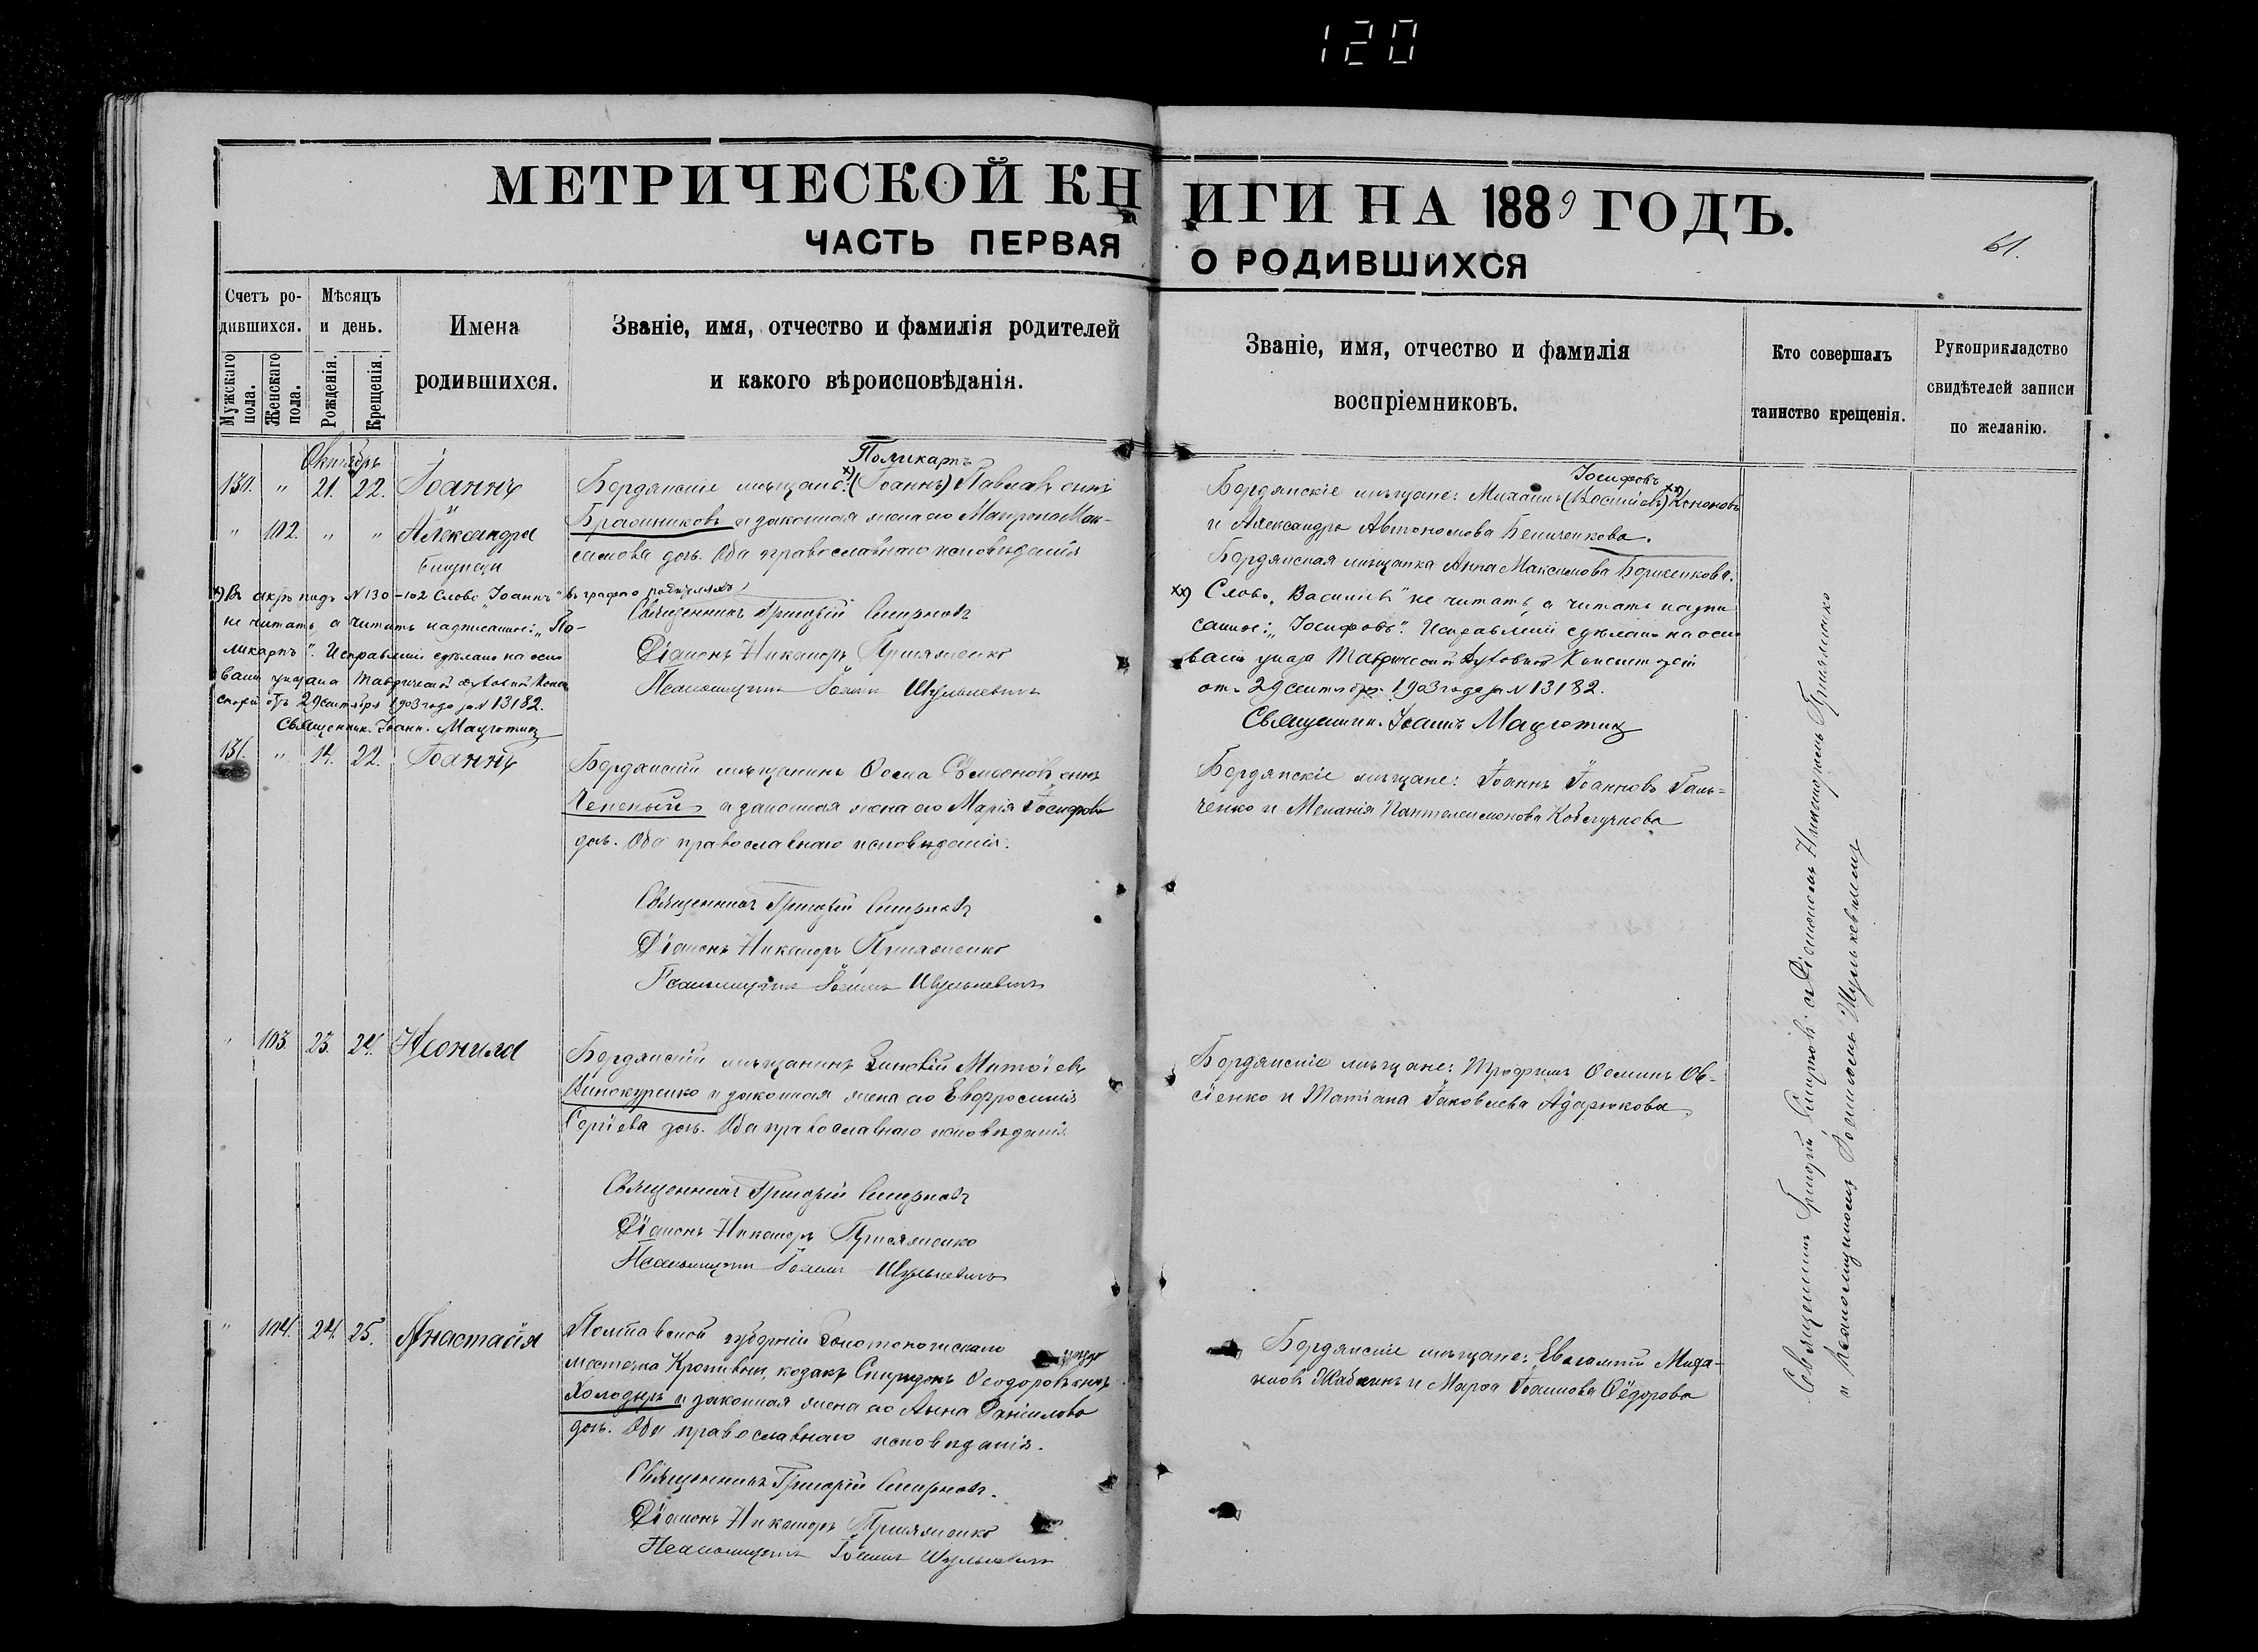 120
МЕТРИЧЕСКОЙ КНИГИ НА 1889 ГОДЪ.
ЧАСТЬ ПЕРВАЯ О РОДИВШИХСЯ
61.
Счетъ ро-
дившихся.
Мужскаго пола.
Женскаго пола.
Мѣсяцъ
и день.
Рожденія.
Крещенія.
Имена
родившихся.
Званіе, имя, отчество и фамилія родителей
и какого вѣроисповѣданія.
Званіе, имя, отчество и фамилія
воспріемниковъ.
Кто совершалъ
таинство крещенія.
Рукоприкладство
свидѣтелей записи
по желанію.
Октябрь
130. " 21. 22. Іоаннъ
" 102. " " Александра
близнецы
Поликарпъ
Бердянскіе мѣщане: х) (Іоаннъ) Павловъ сынъ
и законная жена его Матрона Мак-
симова дочь. Оба православнаго исповѣданія
Священникъ Григорій Смирновъ
Діаконъ Никаноръ
Псаломщикъ Іоаннъ Шулькевичъ
х) Въ актѣ подъ № 130-102 слово "Іоаннъ" въ графѣ о родителяхъ
не читать, а читать надписанное: "По-
ликарпъ". Исправленіе сдѣлано на осно
ваніи указа Таврической Духовной Конси
сторіи отъ 29 сентября 1903 года за № 13182.
Священник. Іоанн.
Іосифовъ
Бердянскіе мѣщане: Михаилъ (Васильевъ) хх) Кононовъ
и Александра Автономова
Бердянская мѣщанка Анна Максимова
хх) Слово "Васильевъ" не читать, а читать надпи
санное: "Іосифовъ". Исправленіе сдѣлано на осно
ваніи указа Таврической Духовной Консисторіи
отъ 29 сентября 1903 года за № 13182.
Священник. Іоаннъ
131. " 14. 22. Іоаннъ
Бердянскій мѣщанинъ Ѳома Сѵмеоновъ сынъ
и законная жена его Марія Іосифова
дочь. Оба православнаго исповѣданія.
Священникъ Григорій Смирновъ
Діаконъ Никаноръ
Псаломщикъ Іоаннъ Шулькевичъ
Бердянскіе мѣщане: Іоаннъ Іоанновъ Галь-
ченко и Меланія Пантелеимонова
" 103. 23. 24. Неонила
Бердянскій мѣщанинъ Зиновій
Винокуренко и законная жена его Евфросинія
Сергіева дочь. Оба православнаго исповѣданія
Священникъ Григорій Смирновъ
Діаконъ Никаноръ
Псаломщикъ Іоаннъ Шулькевичъ
Бердянскіе мѣщане: Трофимъ Ѳоминъ Ов-
сіенко и Татіана Іаковлева Адарюкова
" 104. 24. 25. Анастасія
Полтавской губерніи Золотоношскаго уѣзда
мѣстечка Кропивны, козакъ Спиридонъ Ѳеодоровъ сынъ
Холодный и законная жена его Анна Даніилова
дочь. Оба православнаго исповѣданія.
Священникъ Григорій Смирновъ.
Діаконъ Никаноръ
Псаломщикъ Іоаннъ Шулькевичъ
Бердянскіе мѣщане: Евлампій Миха-
иловъ и Марѳа Іоаннова Ѳедорова
Священникъ Григорій Смирновъ съ Діакономъ Никаноромъ
и Псаломщикомъ Іоанномъ Шулькевичемъ